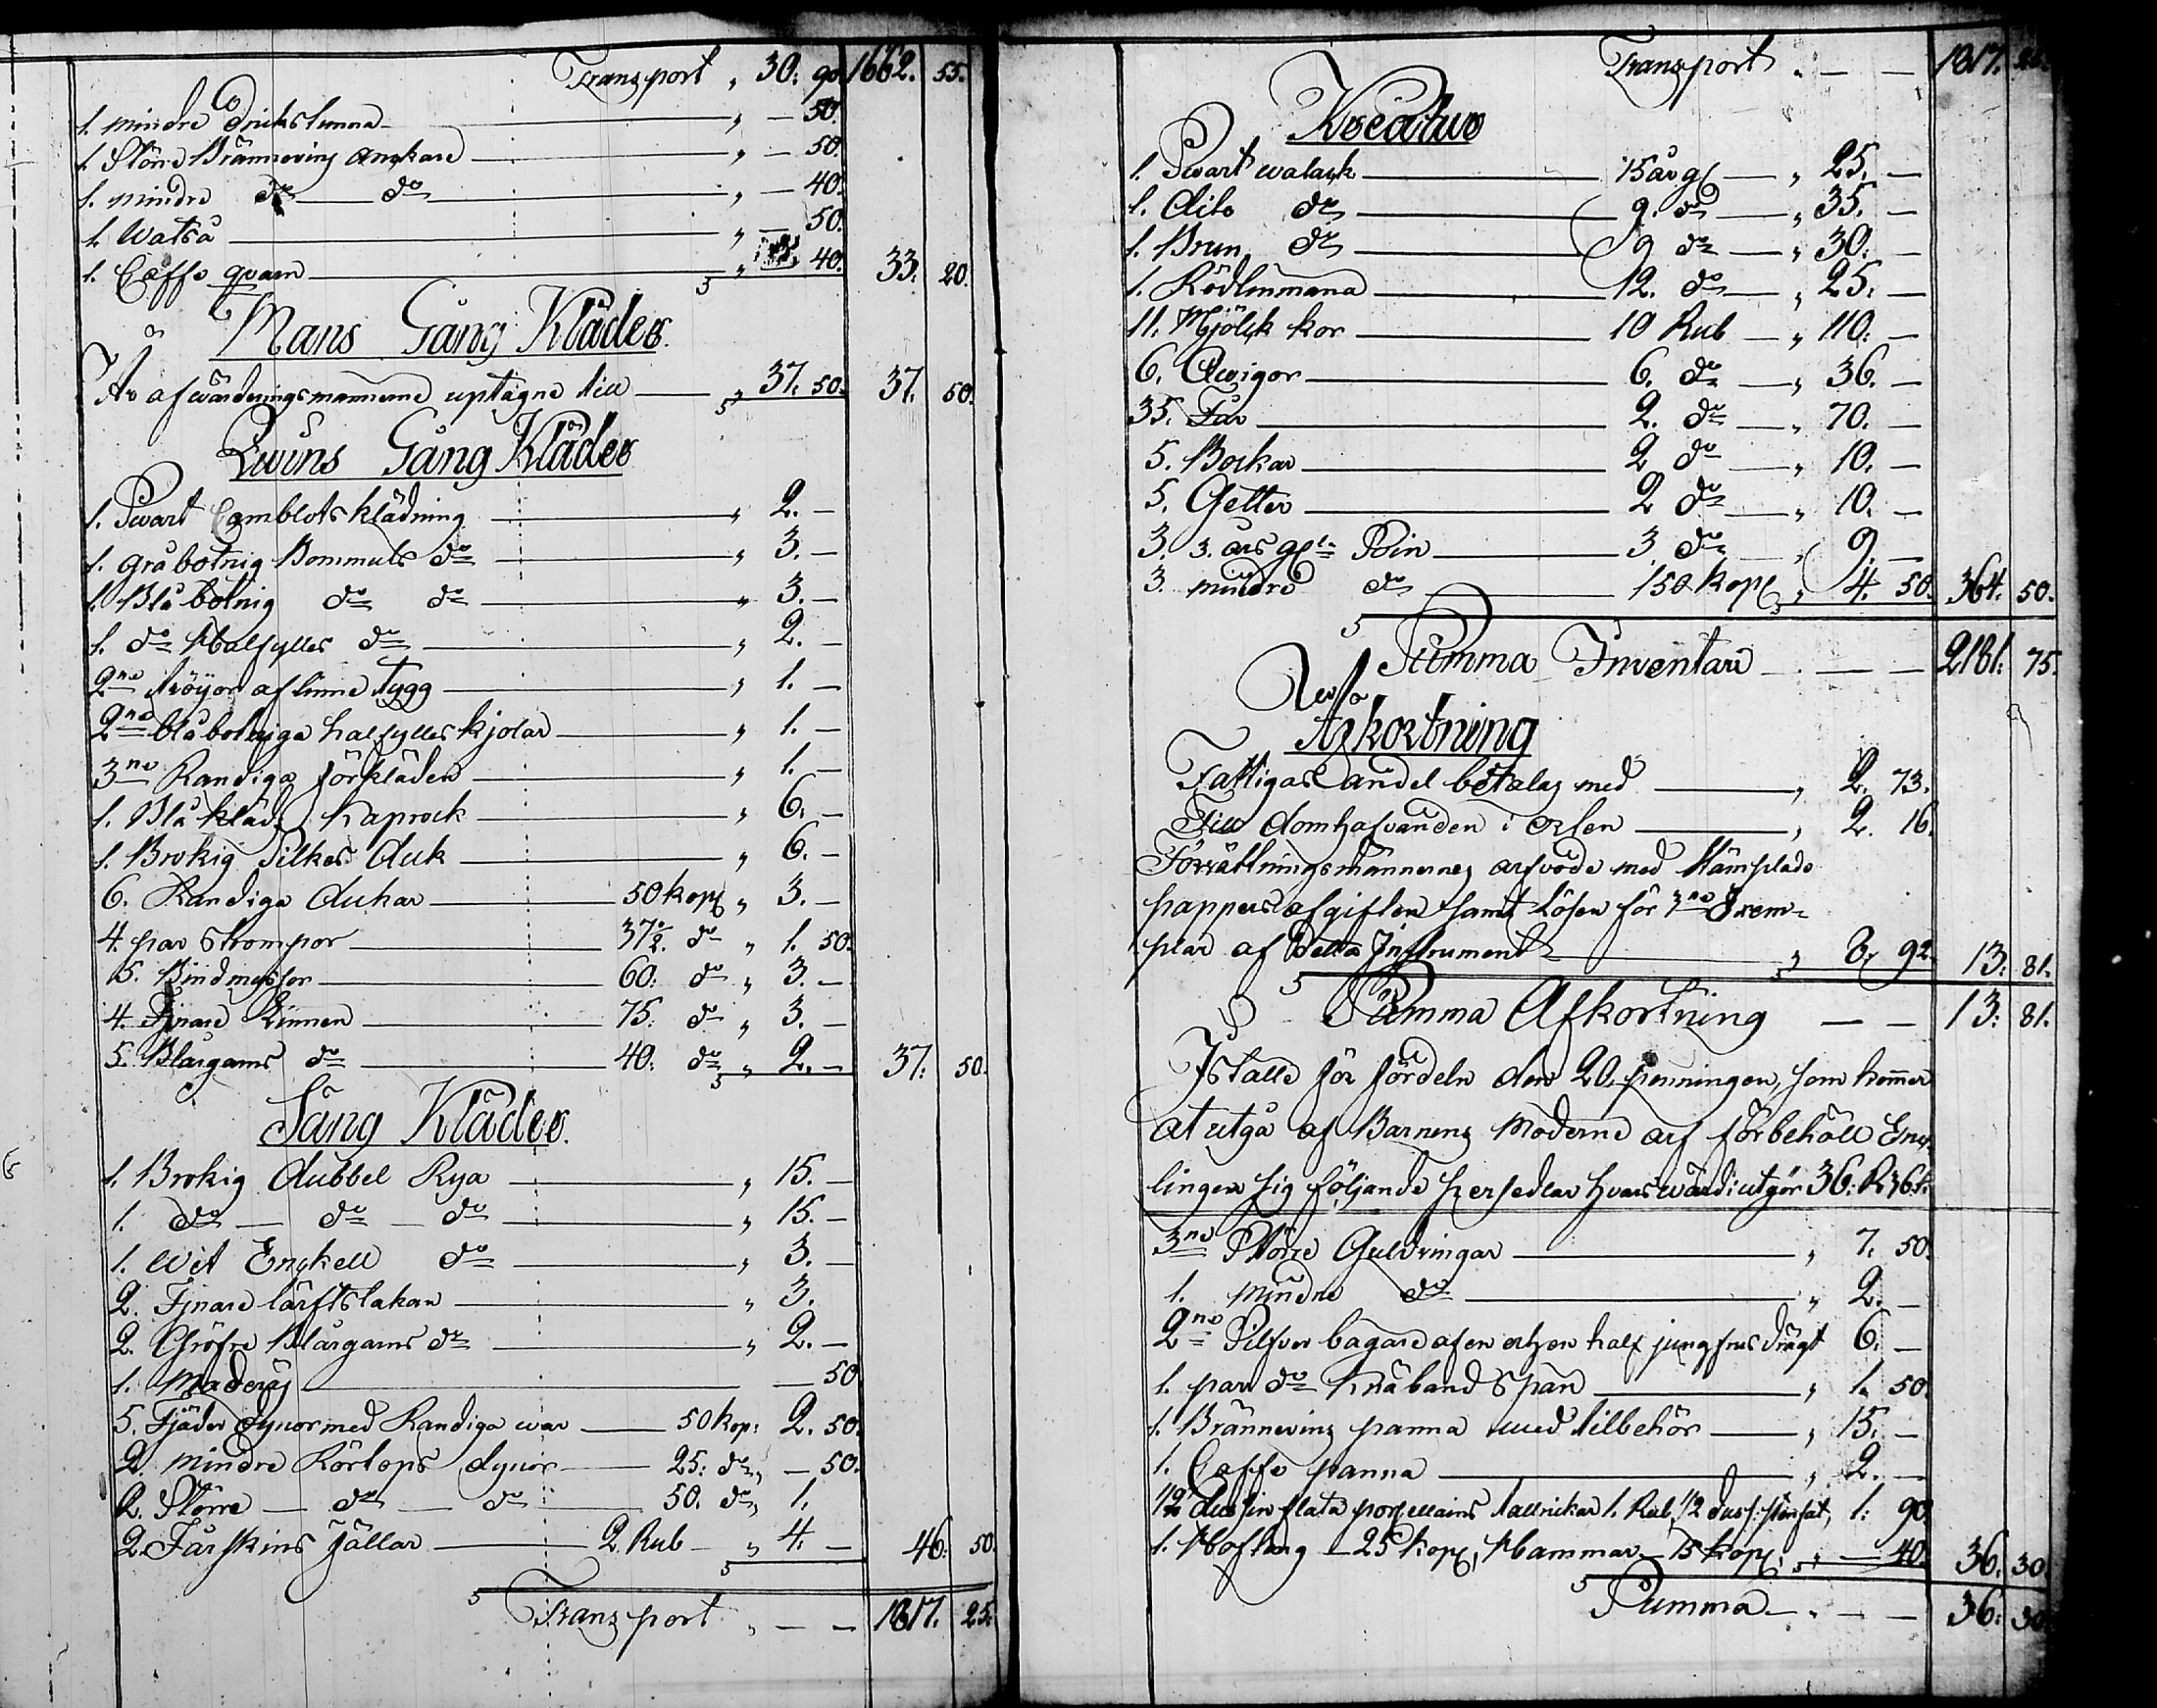 Transport „ 30: 90 1662. 55.
1. mindre Drickstunna — „ — 50.
1. Större Brännevins anckare — „ — 50.
1. mindre do do — „ — 40.
1. Watså — „ — 50.
1. Caffe qvarn — „ 40. 33. 20.
Mans Gång Kläder.
Är af värderingsmännerne uptagne till — „ 37. 50. 37. 50.
Qwins Gång Kläder
1. Swart Camblots klädning — „ 2. —
1. gråbotnig Bommuls do — „ 3. —
1. Blå botnig do do — „ 3. —
1. do Halfylles do — „ 2. —
2ne tröÿor af linne tygg — „ 1. —
2ne blåbotniga halfylles kjolar — „ 1. —
3ne Randiga förkläden — „ 1. —
1. Blå kläds kaprock — „ 6. —
1. Brokig Silkes duk — „ 6. —
6. Randiga dukar — 50 kop „ 3. —
4. par strompor — 37½. do „ 1. 50.
5. Bindmyssor — 60: do „ 3. —
4. Fjnare Linnen — 75: do „ 3. —
5. Blårgarns do — 40: do „ 2. — 37: 50.
Säng Kläder.
1. Brokig dubbel Rya — „ 15. —
1. do — do — do — „ 15. —
1. Wit Enckell do — „ 3. —
2. Fjnare lärftslakan — „ 3.
2. Gröfre Blårgarns do — „ 2. —
1. Maderass — — 50
5. Fjäder dynor med Randiga war — 50 kop: 2. 50.
2. mindre Körlops dynor — 25: do „ — 50.
2. Större — do — do — 50. do „ 1.
2. Fårskins fällar — 2. Rub — „ 4. — 46: 50.
Transport „ — — 1817. 25.
Transport. — — 1817. 25.
Kreatur
1. Swart walack — 15 år gl — „ 25. —
1. dito do — 9. do — „ 35. —
1. Brun do — 9 do — „ 30. —
1. Rödlimmana — 12. do — „ 25: —
11. Mjölck kor — 10 Rub — „ 110: —
6. Qwigor — 6. do — „ 36. —
35. Får — 2. do — „ 70. —
5. Bockar — 2 do — „ 10. —
5. Getter — 2 do — „ 10. —
3. 3. års gl Svin — 3 do — „ 9. —
3. mindre do — 150 kop „ 4. 50. 364: 50.
Summa Inventarie — — 2181: 75.
Afkortning
Fattigas andel betalas med — „ 2. 73.
Till domhafvanden i — „ 2. 16.
Förrättningsmännernes arfvode med stämplade
pappers afgiften samt lösen för 3ne Exem-
plar af detta Instrument — „ 8. 92. 13: 81.
Summa Afkortning — — 13: 81.
I ställe för fördeln den 20. penningen, som kommer
at utgå af Barnens Moderne arf förbehåll Enck
lingen sig följande persedlar hvars wärde utgör 36: R 36 k.
3ne Större Guldringar — „ 7. 50.
1. mindre do — „ 2. —
2ne Silfver bägare af en och en half jungfrus drägt 6. —
1. par do knäband span — „ 1. 50.
1. Brännevins panna med tilbehör — „ 15. —
1. Caffe panna — „ 2. —
1/2 dussin flata porsellains tallrickar 1. Rub, 1/2 duss: stenfat, 1: 90.
1. Hoftang — 25 kop, Hammar — 15 kop: „ — 40. 36. 30.
Summa — — — 36: 30.